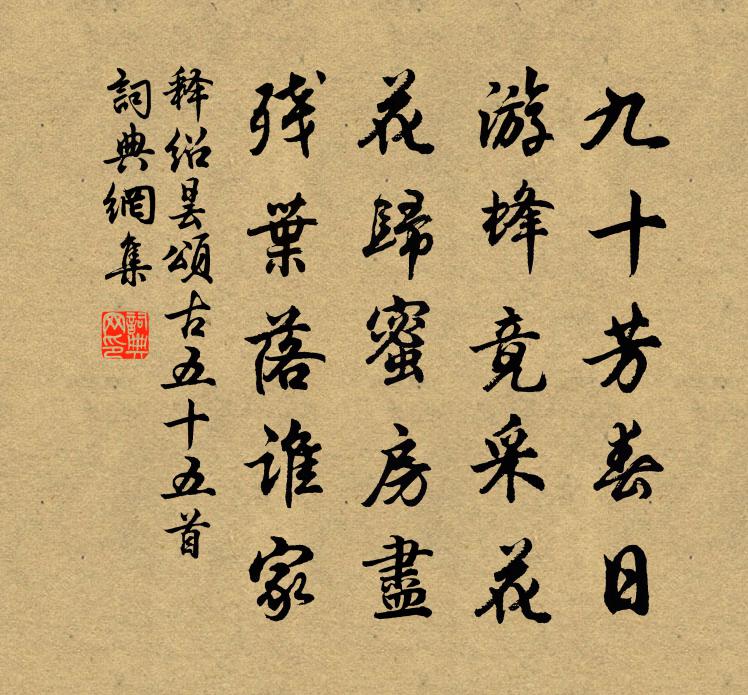 九十芳春日
游蜂竟采花
花歸蜜房盡
残葉落誰家
释紹曇頌古五十五首
詞典網集
詞典
网印